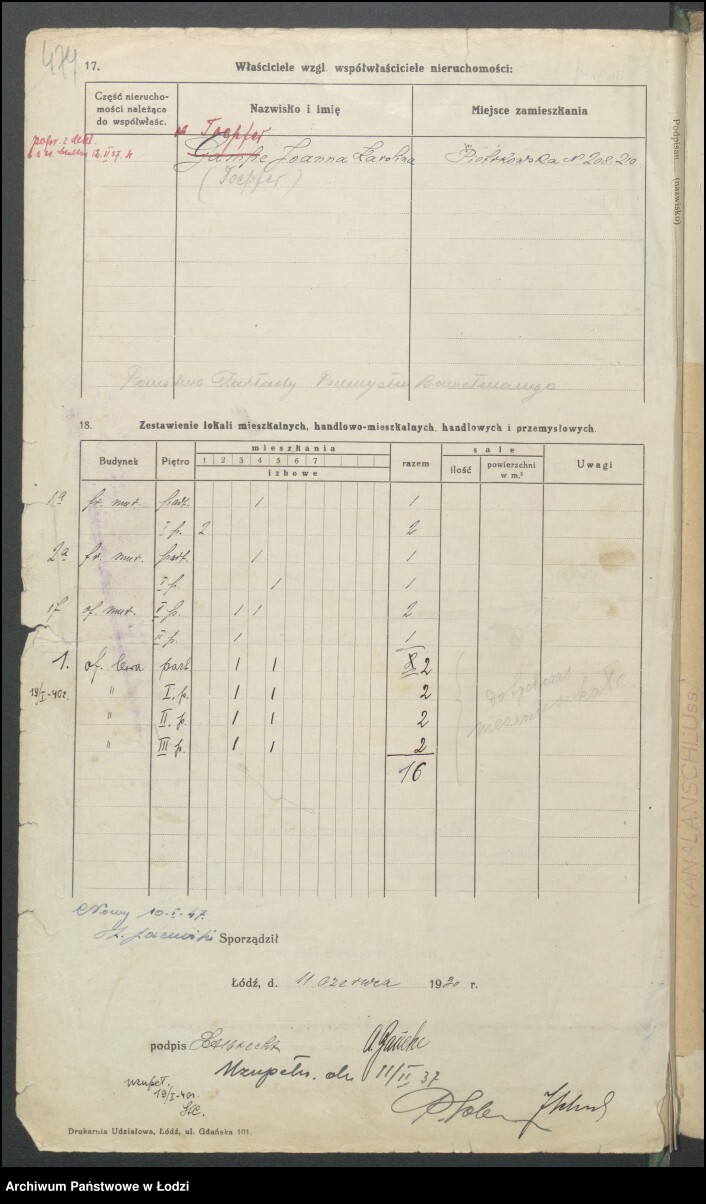 474
17. Właściciele wzgl. współwłaściciele nieruchomości:
Część nierucho-
mości należąca
do współwłaśc.
Nazwisko i imię
Miejsce zamieszkania
Toepfer
Joanna Karolina Piotrkowska N 208-210
(Toepfer)
Przemysłu
18. Zestawienie lokali mieszkalnych, handlowo-mieszkalnych, handlowych i przemysłowych.
Budynek Piętro mieszkania razem sale Uwagi
1 2 3 4 5 6 7 ilość powierzchni
w m.²
izbowe
1a fr. mur. part. 1 1
I p. 2 2
2a fr. mur. part. 1 1
I p. 1 1
of. mur. I p. 1 1 2
II p. 1 1
1. of. lewa part. 1 1 8 2
19/I-40r. " I. p. 1 1 2
" II. p. 1 1 2
" III p. 1 1 2
16
dotychczas
Nowy 10-I-47.
Sporządził
Łódź, d. 11 czerwca 1930 r.
podpis
Uzupełn. dn 11/II 37
uzupeł.
19/I-40r.
Drukarnia Udziałowa, Łódź, ul. Gdańska 101.
Podpisam (nazwisko)
KANALANSCHLUss!
Archiwum Państwowe w Łodzi